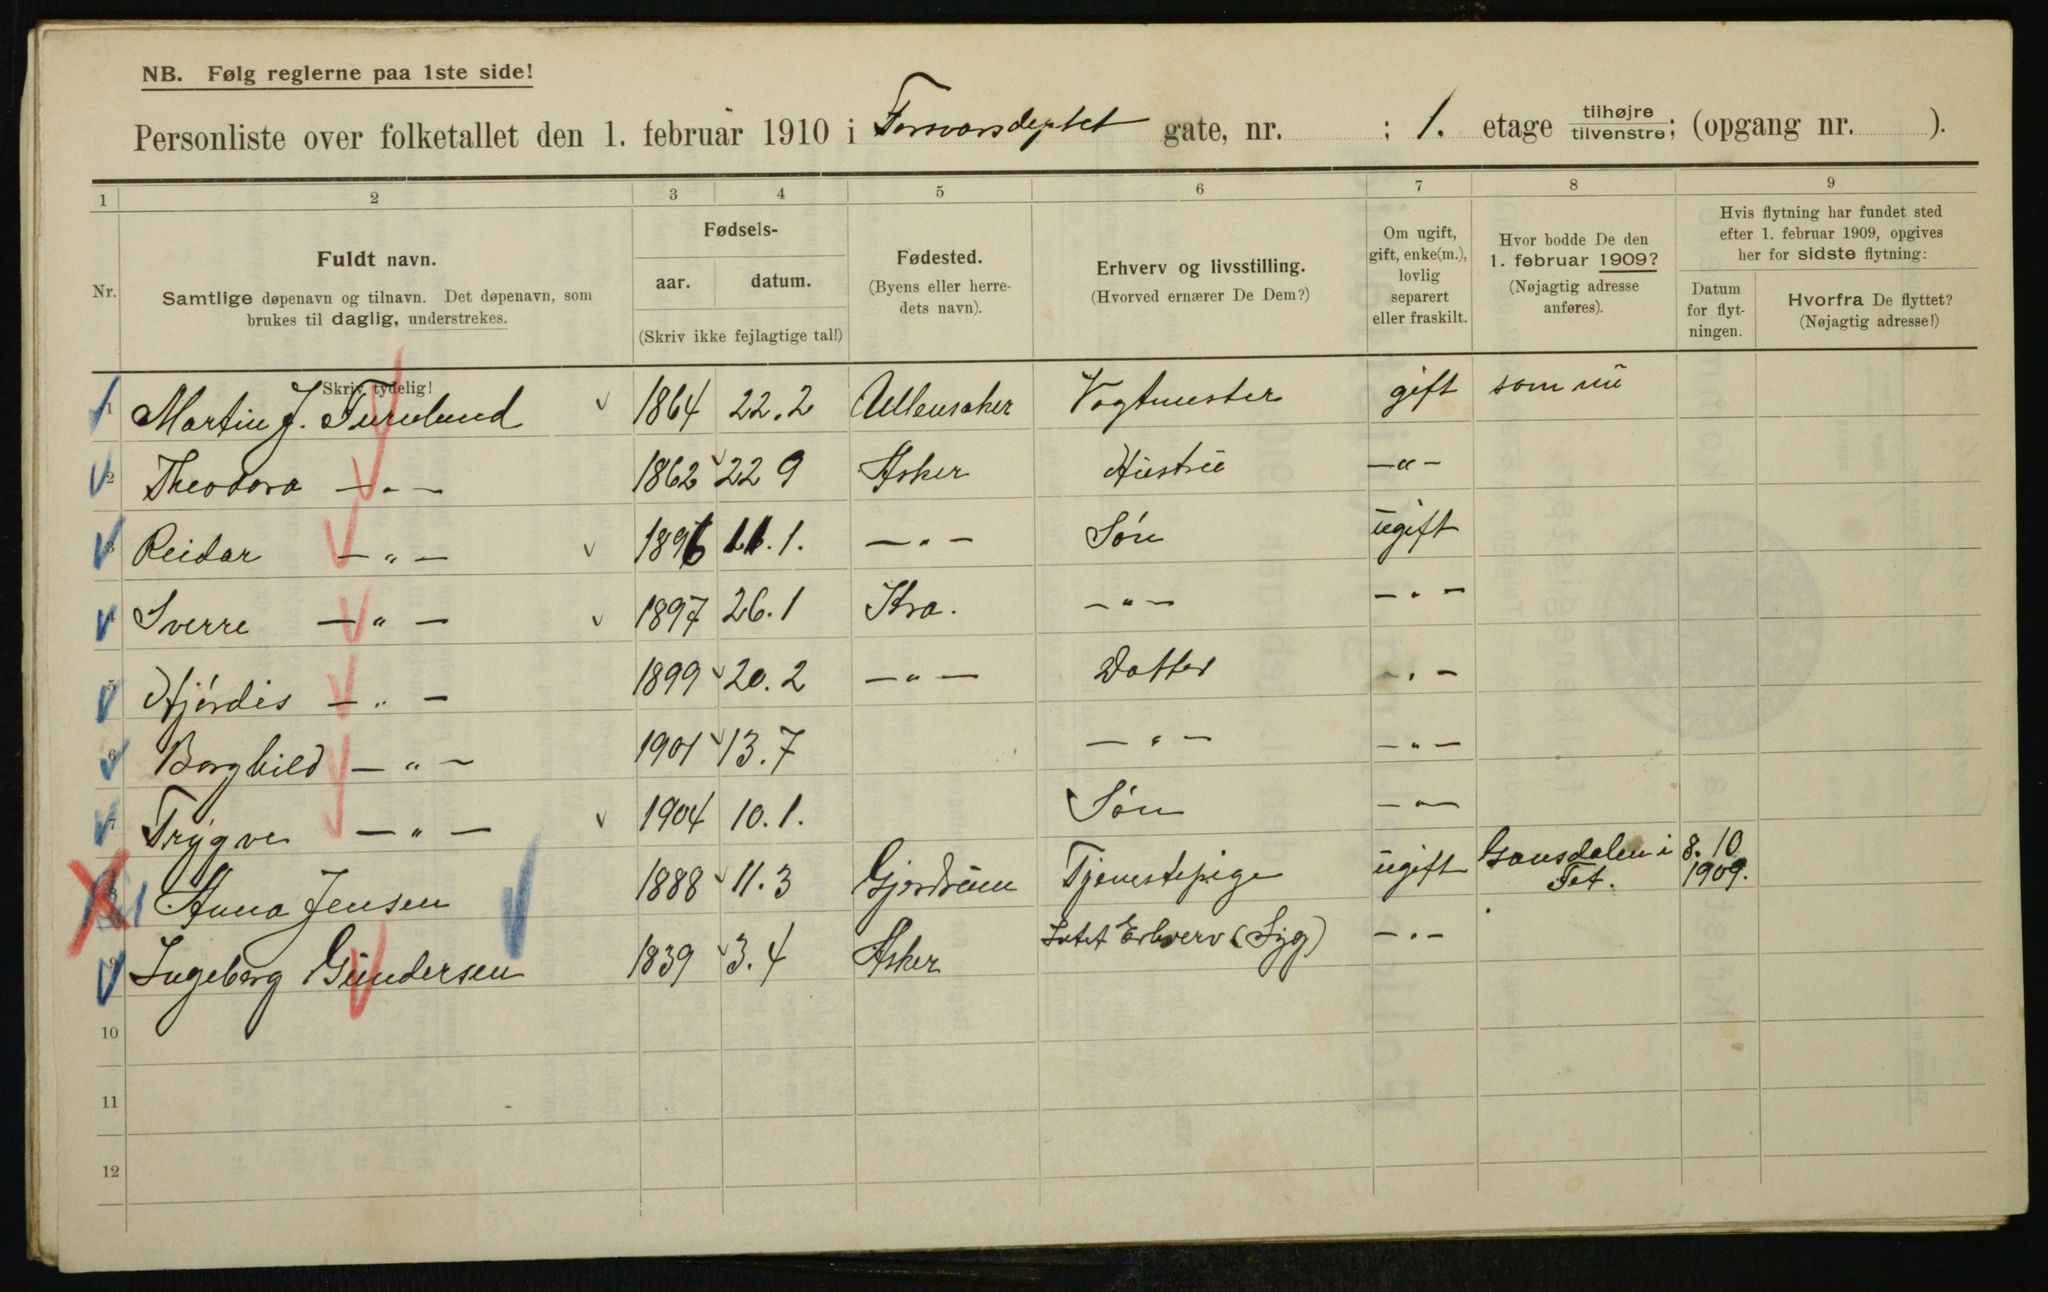 NB. Følg reglerne paa 1ste side!
Personliste over folketallet den 1. februar 1910 i Forsvarsdeptet gate, nr. ; 1. etage tilhøjre tilvenstre; (opgang nr. ).
1 2 3 4 5 6 7 8 9
Nr.
Fuldt navn.
Samtlige døpenavn og tilnavn. Det døpenavn, som
brukes til daglig, understrekes.
Skriv tydelig!
Fødsels-
aar. datum.
(Skriv ikke fejlagtige tal!)
Fødested.
(Byens eller herre-
dets navn).
Erhverv og livsstilling.
(Hvorved ernærer De Dem?)
Om ugift,
gift, enke(m.),
lovlig
separert
eller fraskilt.
Hvor bodde De den
1. februar 1909?
(Nøjagtig adresse
anføres).
Hvis flytning har fundet sted
efter 1. februar 1909, opgives
her for sidste flytning:
Datum
for flyt-
ningen.
Hvorfra De flyttet?
(Nøjagtig adresse!)
1 Martin J. 1864 22.2 Ullensaker Vogtmester gift som nu
2 Theodora — " — 1862 22 9 Asker Hustru — " —
3 Reidar — " — 1896 11.1. — " — Søn ugift
4 Sverre — " — 1897 26.1 Kra. — " — — " —
5 Hjørdis — " — 1899 20.2 — " — Datter — " —
6 Borghild — " — 1901 13.7 — " — — " —
7 Trygve — " — 1904 10.1. Søn — " —
8 Anna Jensen 1888 11.3 Gjerdrum Tjenestepige ugift Gansdalen i Fet. 8.10 1909.
9 Ingeborg Gundersen 1839 3.4 Asker Intet Erhverv (Syg) — " —
10
11
12